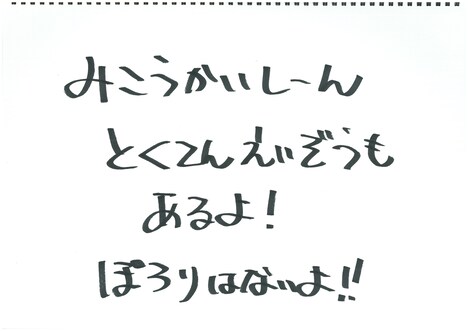 みこうかいしーん
とくてんえいぞうも
あるよ!
ぽろりはないよ!!